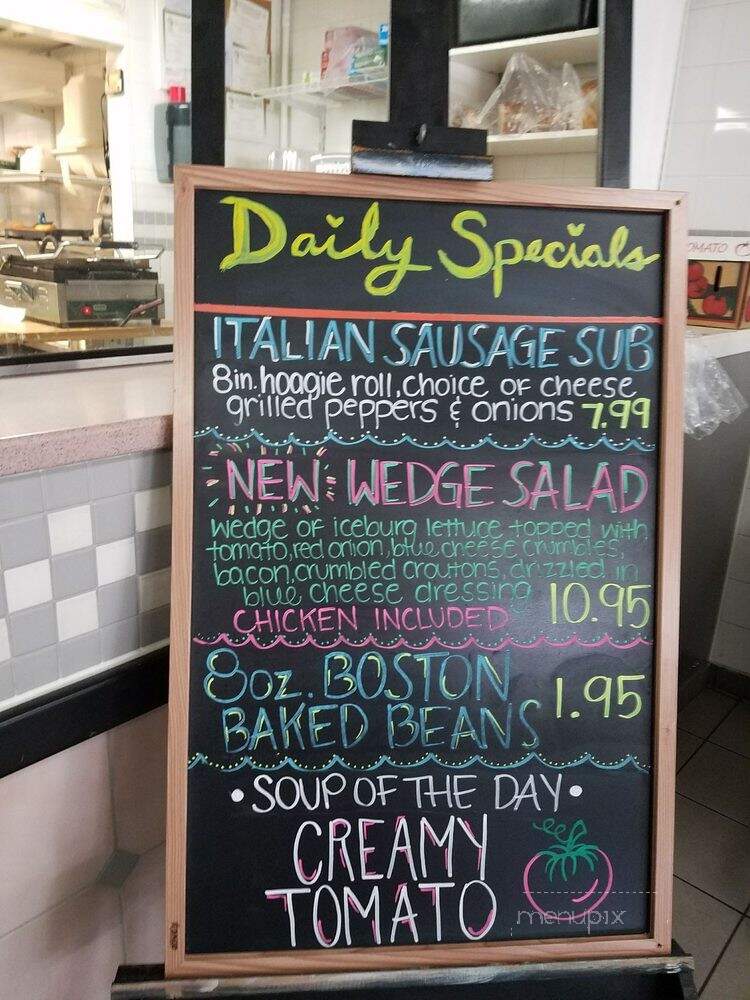 Daily Specials
ITALIAN SAUSAGE SUB
8in. hoagie roll, choice of cheese
grilled peppers & onions 7.99
NEW WEDGE SALAD
wedge of iceburg lettuce topped with
tomato, red onion, blue cheese crumbles,
bacon, crumbled croutons, drizzled in
blue cheese dressing 10.95
CHICKEN INCLUDED
8oz. BOSTON
BAKED BEANS 1.95
• SOUP OF THE DAY •
CREAMY
TOMATO
menupix